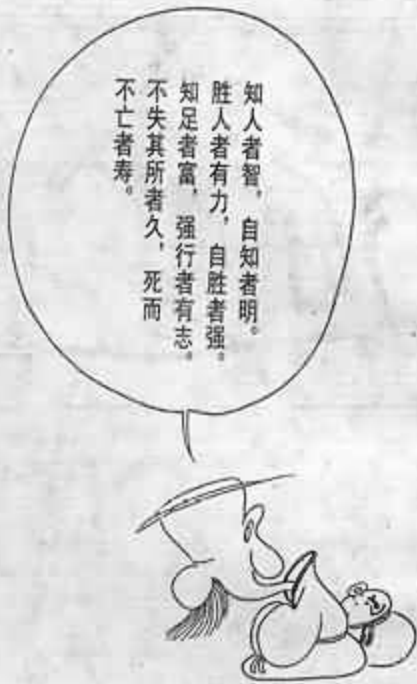 知人者智，自知者明。
胜人者有力，自胜者强。
知足者富，强行者有志。
不失其所者久，死而
不亡者寿。